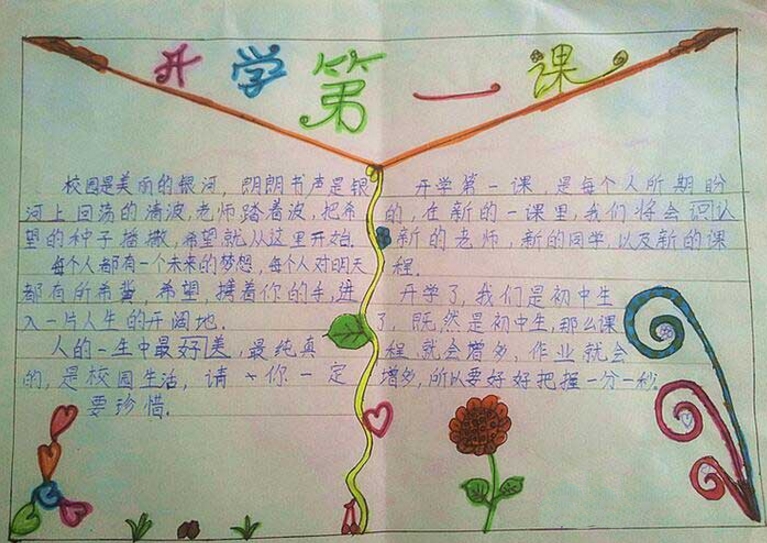 开学第一课
校园是美丽的银河，朗朗书声是银
河上回荡的清波，老师踏着波，把希
望的种子播撒，希望就从这里开始.
每个人都有一个未来的梦想，每个人对明天
都有所希冀，希望，携着你的手，进
入一片人生的开阔地.
人的一生中最好美，最纯真
的，是校园生活，请 你一定
要珍惜.
开学第一课，是每个人所期盼
的，在新的一课里，我们将会识认
新的老师，新的同学，以及新的课
程.
开学了，我们是初中生
了，既然是初中生，那么课
程就会增多，作业就会
增多，所以要好好把握一分一秒.